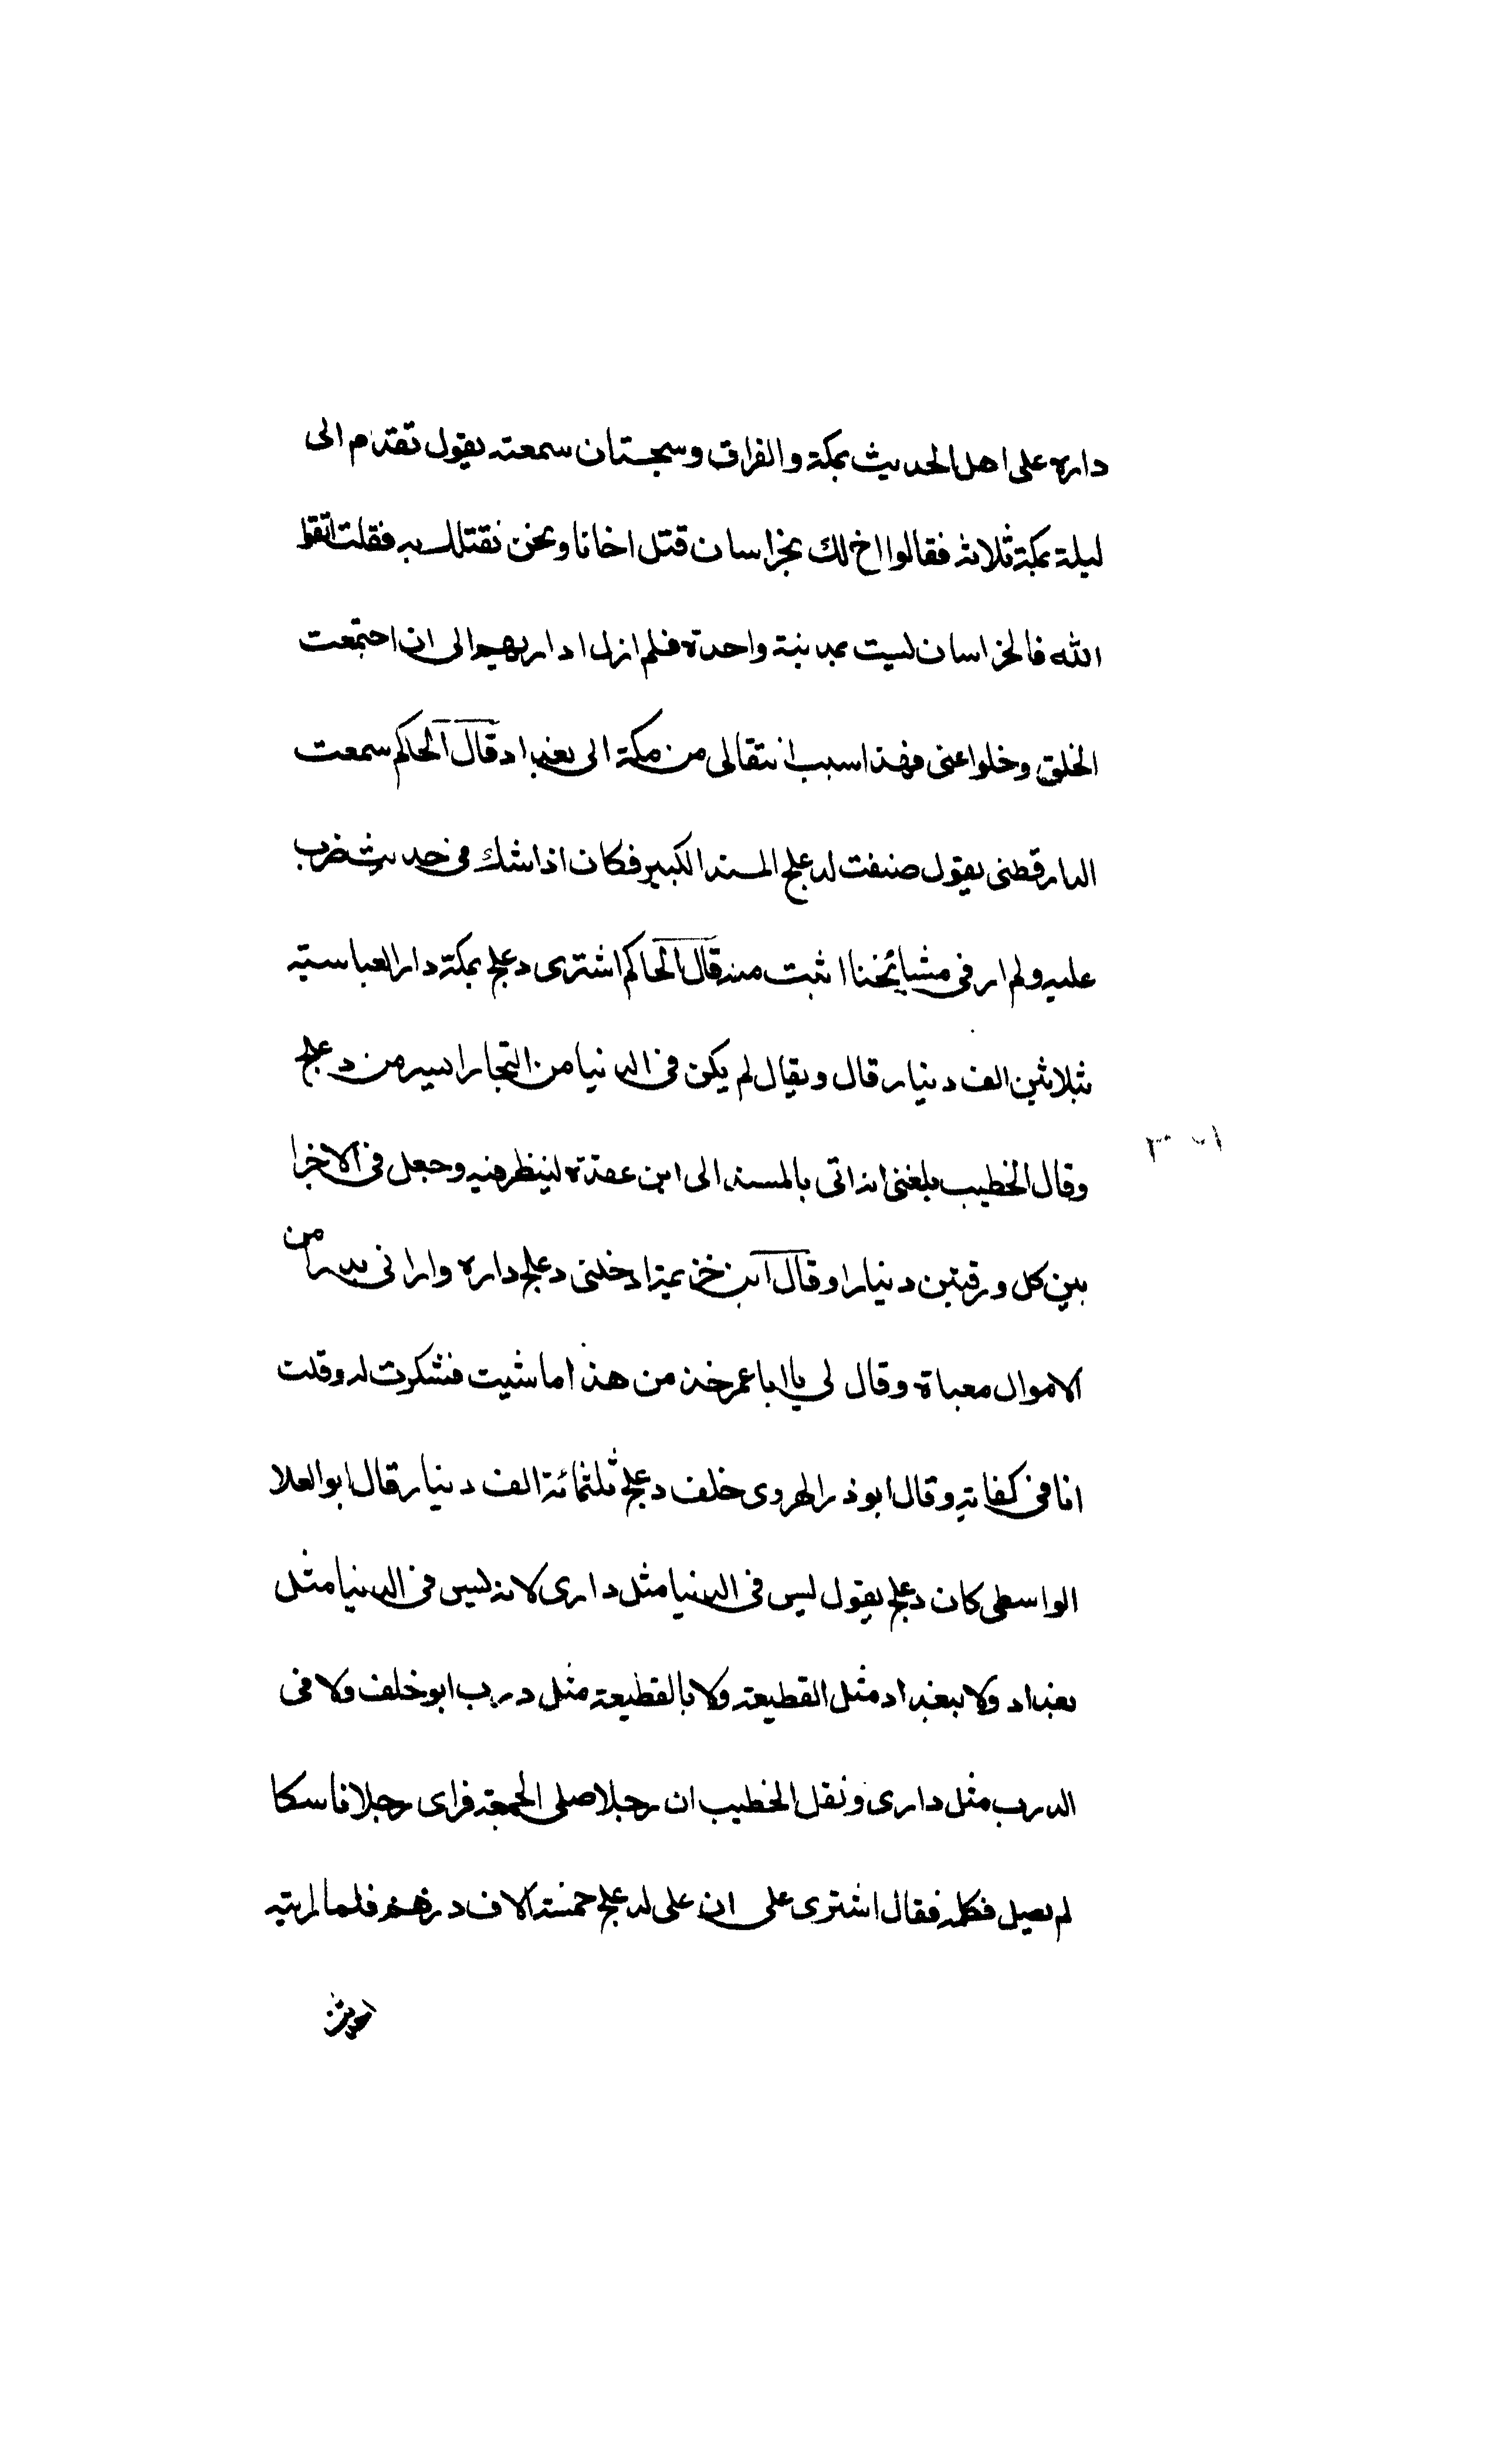 داره على اهل الحديث بمكة والفراق وسجستان سمعته يقول تقدم الى
ليلة بمكة ثلاثة فقالوا اخ لك بخراسان قتل اخانا ونحن نقتلك به فقلت اتقوا
الله فالخراسان ليست بمدينة واحدة فلم ازل اداريهم الى ان اجتمعت
الخلق وخلوا عنى فهذا سبب انتقالى من مكة الى بغداد قال الحاكم سمعت
الدارقطنى يقول صنفت لدعلج المسند الكبير فكان اذا شك فى حديث ضرب
عليه ولم ار فى مشايخنا اثبت منه قال الحاكم اشترى دعلج بمكة دار العباسية
بثلاثين الف دينار قال ويقال لم يكن فى الدنيا من التجار ايسر من دعلج
وقال الخطيب بلغنى انه اتى بالمسند الى ابن عقدة لينظر فيه وجعل فى الاخرا
بين كل ورقتين دينارا وقال ابن خزيمة ادخلنى دعلج داره وارانى بدرا من
الاموال معباة وقال لى يا ابا عمر خذ من هذا ما شيت فشكرت له وقلت
انا فى كفاية وقال ابو ذر الهروى خلف دعلج ثلثمائة الف دينار قال ابو العلا
الواسطى كان دعلج يقول ليس فى الدنيا مثل دارى لانه ليس فى الدنيا مثل
بغداد ولا ببغداد مثل القطيعة ولا بالقطيعة مثل درب ابو خلف ولا فى
الدرب مثل دارى ونقل الخطيب ان رجلا صلى الجمعة فراى رجلا ناسكا
لم يصل فكلمه فقال اشترى على ان على لدعلج خمسة الاف درهم فلما رايته
احدثت